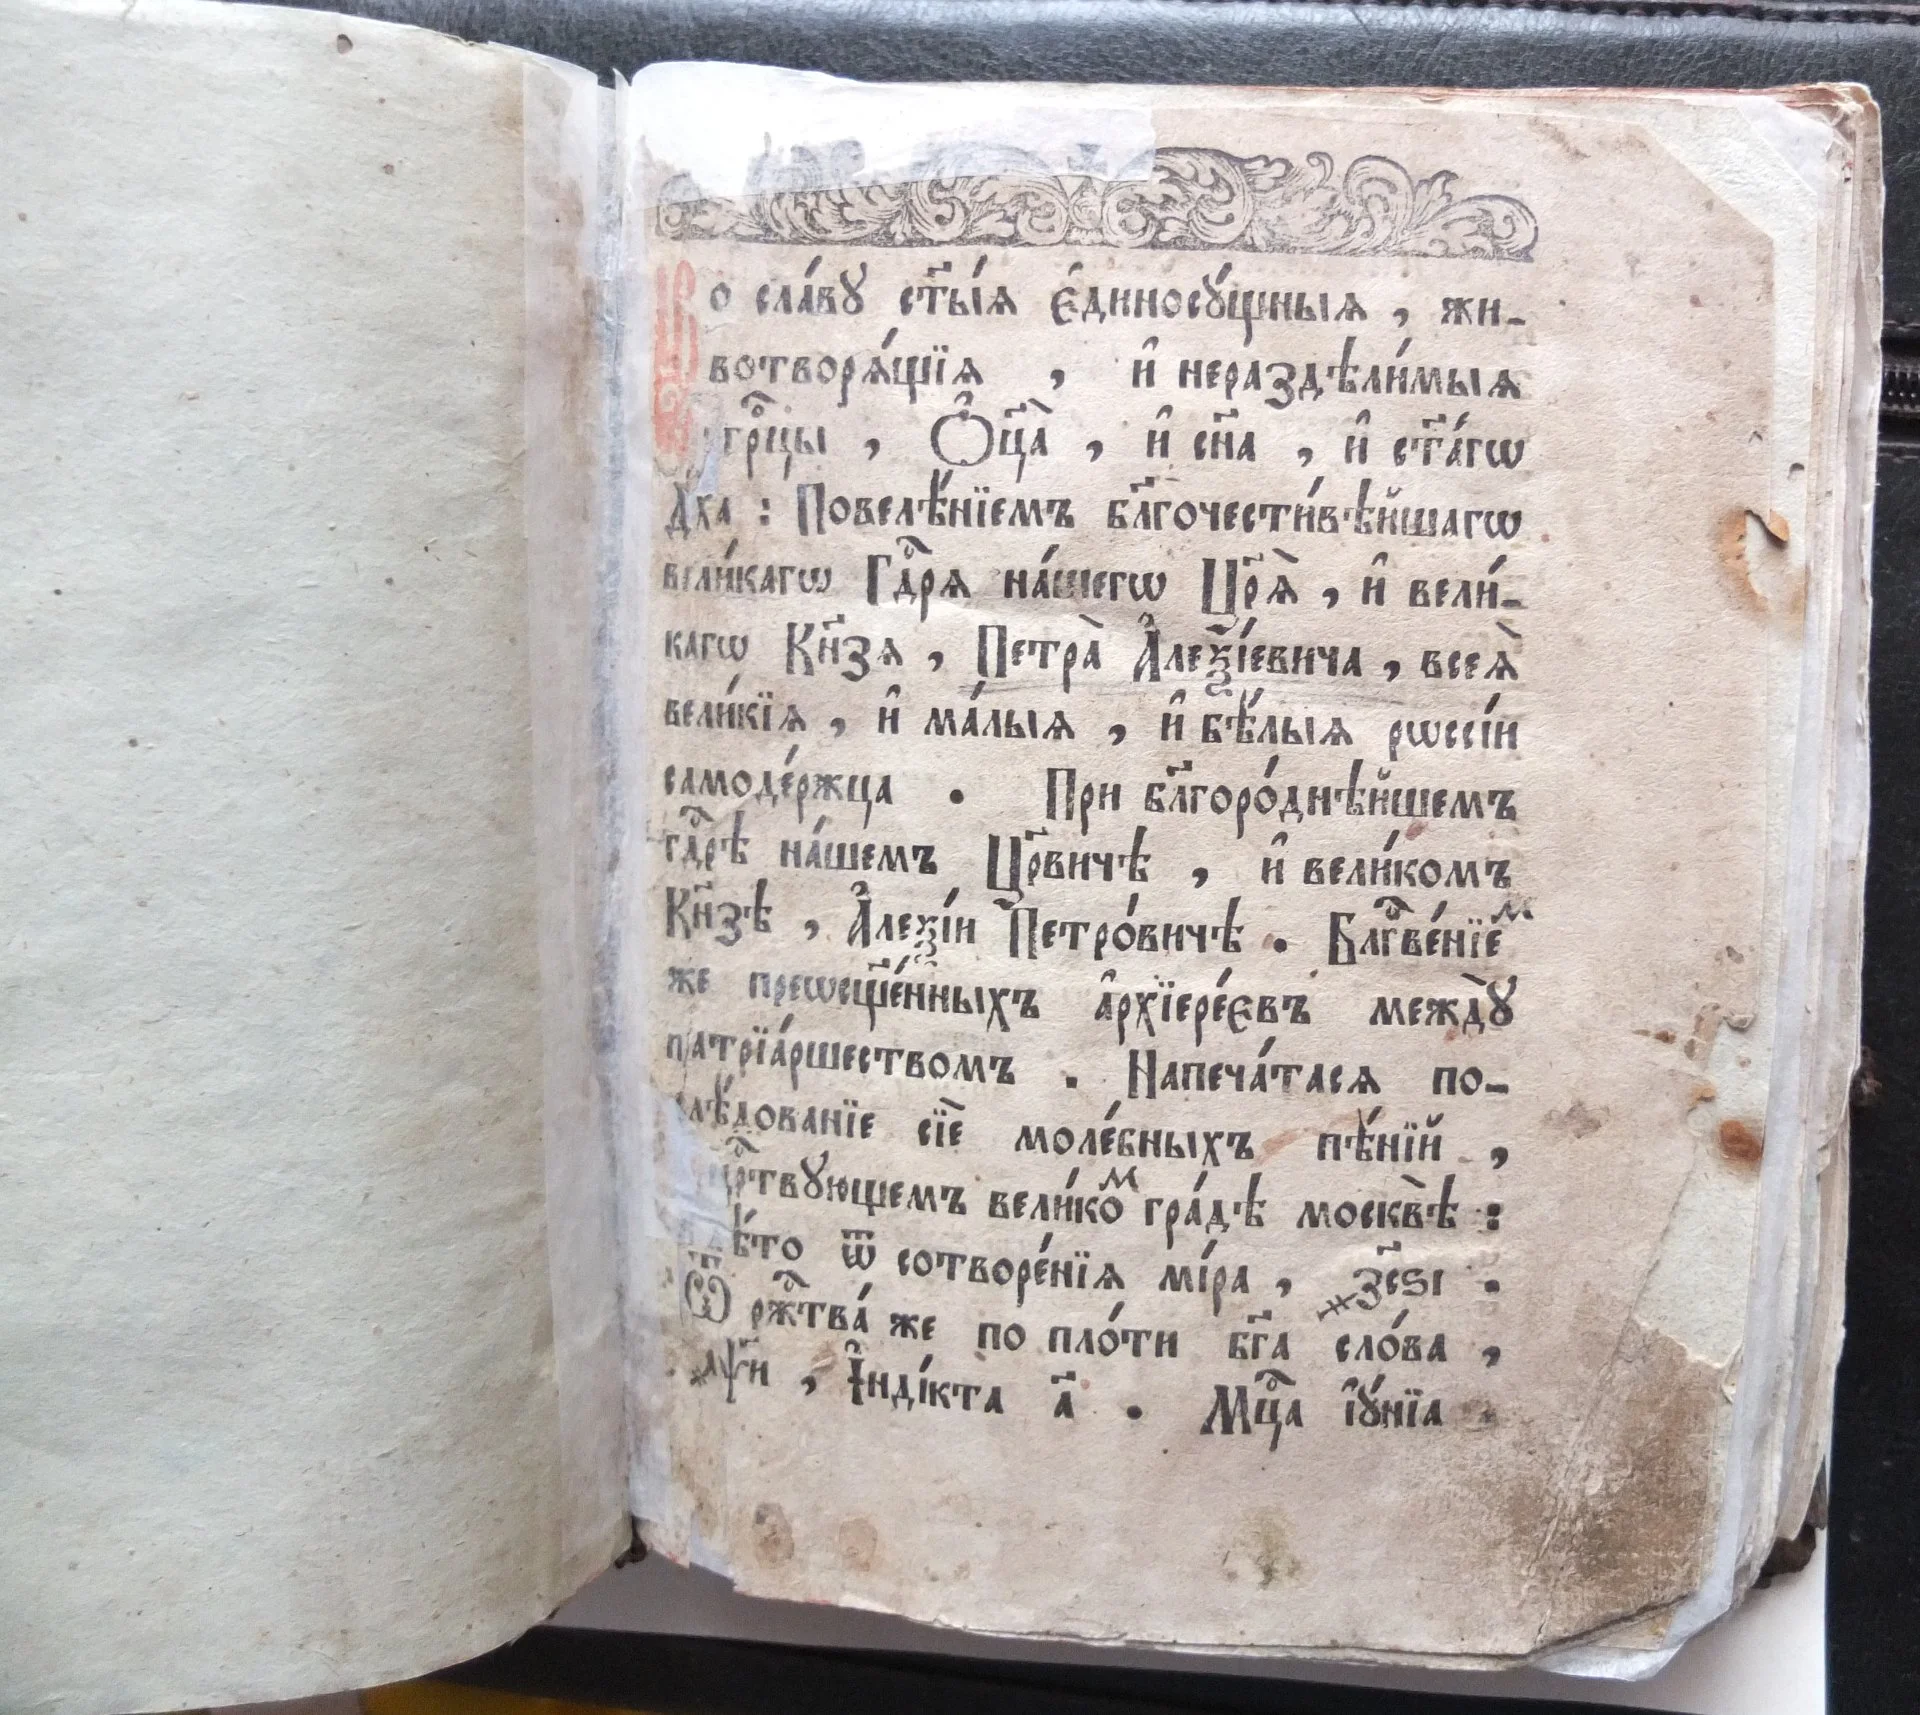 Во сла́вꙋ ст҃ы́ѧ є҆диносꙋ́щныѧ, жи-
вотворѧ́щїѧ, и҆ нераздѣли́мыѧ
трⷪ҇цы, Ѻ҆ц҃а̀, и҆ сн҃а, и҆ ст҃а́гѡ
Дх҃а: Повелѣ́нїемъ бл҃гочести́вѣйшагѡ
вели́кагѡ Гдⷭ҇рѧ на́шегѡ Цр҃ѧ̀, и҆ вели́-
кагѡ Кн҃зѧ, Петра̀ А҆леѯі́евича, всеѧ̀
вели́кїѧ, и҆ ма́лыѧ, и҆ бѣ́лыѧ рѡссі́и
самоде́ржца. При бл҃горо́днѣйшемъ
гдⷭ҇рѣ на́шемъ Цр҃вичѣ, и҆ вели́комъ
Кн҃зѣ, А҆леѯі́и Петро́вичѣ. Блгⷭ҇ве́нїеⷨ
же преѡсщ҃е́нныхъ а҆рхїере́євъ междꙋ̀
патрїа́ршествомъ. Напеча́тасѧ по-
слѣ́дованїе сїѐ моле́бныхъ пѣ́нїй,
црⷭ҇твꙋющемъ вели́коⷨ гра́дѣ москвѣ̀:
лѣ́то ѿ сотворе́нїѧ мі́ра, ҂зс҃ѕі.
Ѿ ржⷭ҇тва́ же по пло́ти бг҃а сло́ва,
҂аѱ҃и, І҆нді́кта а҃. Мцⷭ҇а і҆ꙋ́нїа